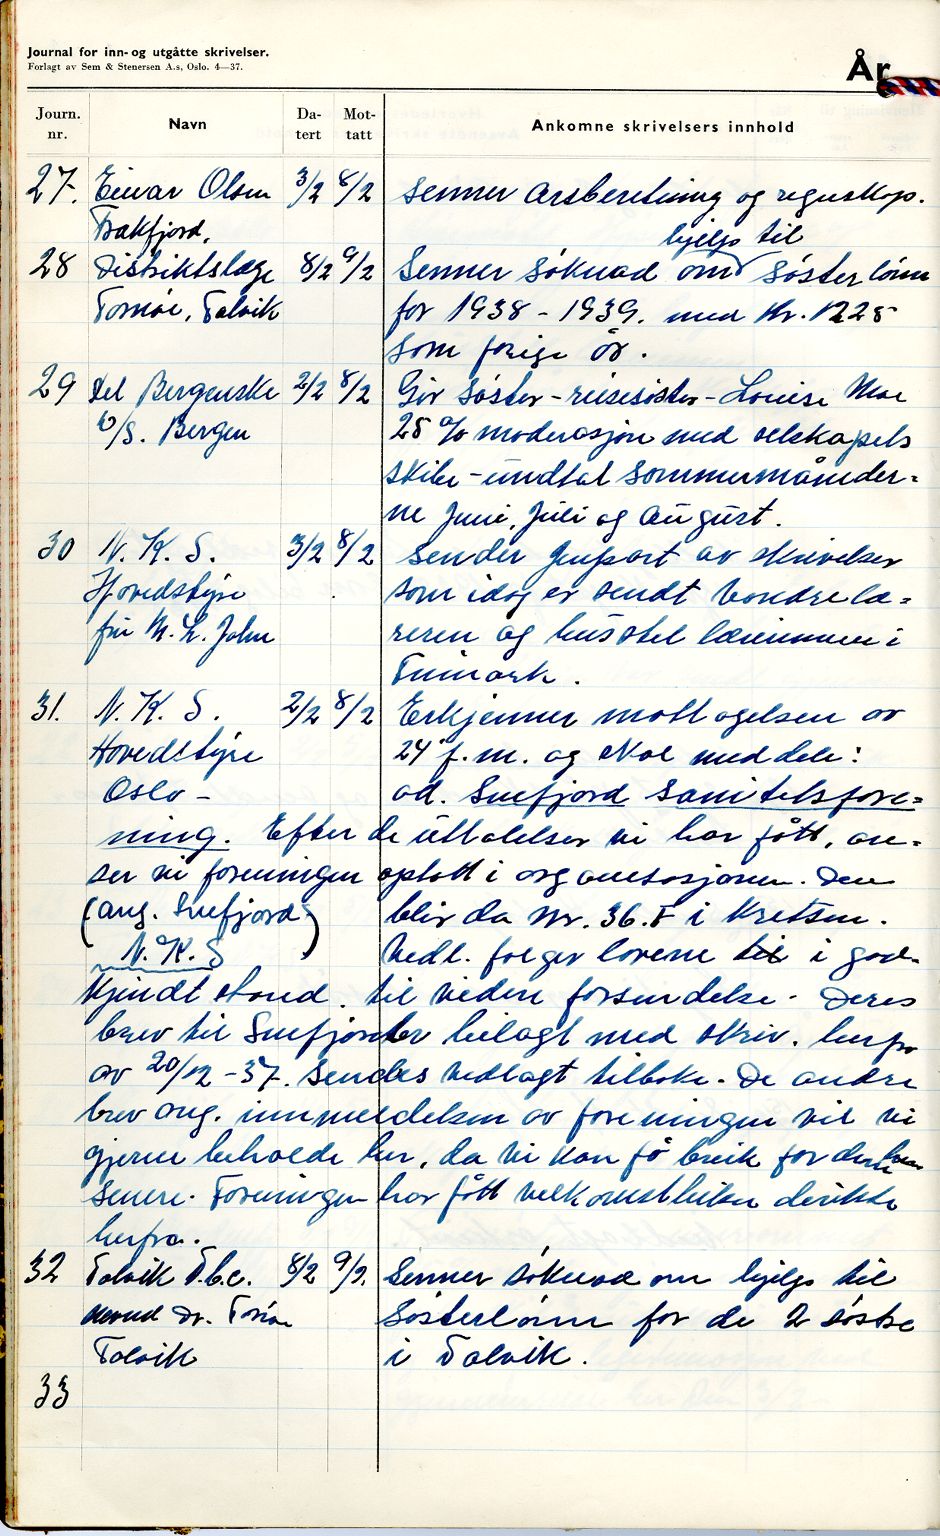 Journal for inn- og utgåtte skrivelser.
Forlagt av Sem & Stenersen A.s, Oslo. 4—37.
År
Journ. nr. Navn Da-tert Mot-tatt Ankomne skrivelsers innhold
27. Einar Olsen 3/2 8/2 Senner årsberetning og regnskap.
Bakfjord,
hjelp til
28 Distriktslæge 8/2 9/2 Senner söknad om söster lönn
Tornöe, Talvik for 1938 - 1939. med Kr. 1225
som forige år.
29 Det Bergenske 2/2 8/2 Gir söster - reisesöster - Louise Moe
D/S. Bergen 25 % moderasjon med selskapets
skibe - undtat sommermåneder=
ne Juni, Juli og August.
30 N. K. S. 3/2 8/2 Sender gjenpart av skrivelser
Hovedstyre som idag er sendt vandrelæ=
fru M. L. Jahn reren og husstel lærerinnen i
Finmark.
31. N. K. S. 2/2 8/2 Erkjenner mottagelsen av
Hovedstyre 24' f.m. og skal meddele:
Oslo - ad. Snefjord Sanitetsfore=
ning. Efter de uttalelser vi har fått, an=
ser vi foreningen optatt i organisasjonen. Den
(ang. Snefjord blir da nr. 36. F i Kretsen.
N.K.S) Vedl. følger lovene til i god=
kjendt stand. til videre forsendelse. Deres
brev til Snefjord er bilagt med skriv. herfra
av 20/12 - 37. sendes vedlagt tilbake. De andre
brev ang. innmeldelsen av foreningen vil vi
gjerne beholde her, da vi kan få bruk for dem
senere. Foreningen har fått velkomsthilsen direkte
herfra.
32 Talvik T.b.c. 8/2 9/2. Senner söknad om hjelp til
nevnd Dr. Tornöe Sösterlönn for de 2 söstre
Talvik i Talvik.
33